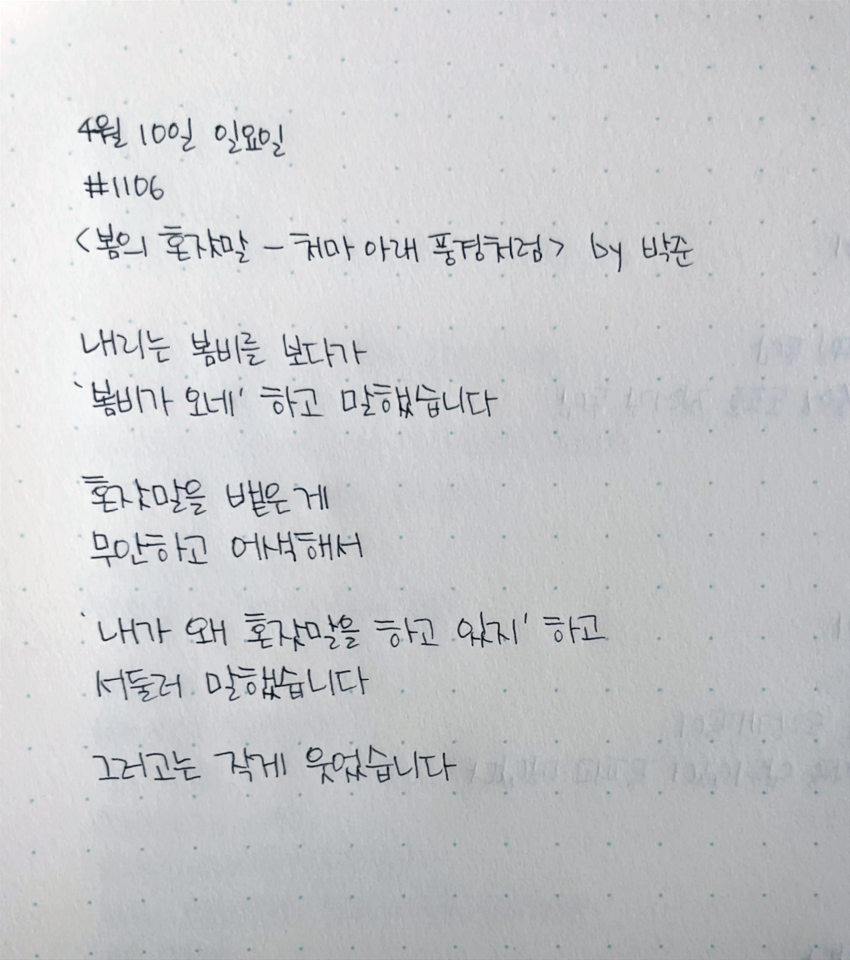 4월 10일 일요일
#1106
<봄의 혼잣말 - 처마 아래 풍경처럼> by 박준
내리는 봄비를 보다가
'봄비가 오네' 하고 말했습니다
혼잣말을 뱉은 게
무안하고 어색해서
'내가 왜 혼잣말을 하고 있지' 하고
서둘러 말했습니다
그러고는 작게 웃었습니다